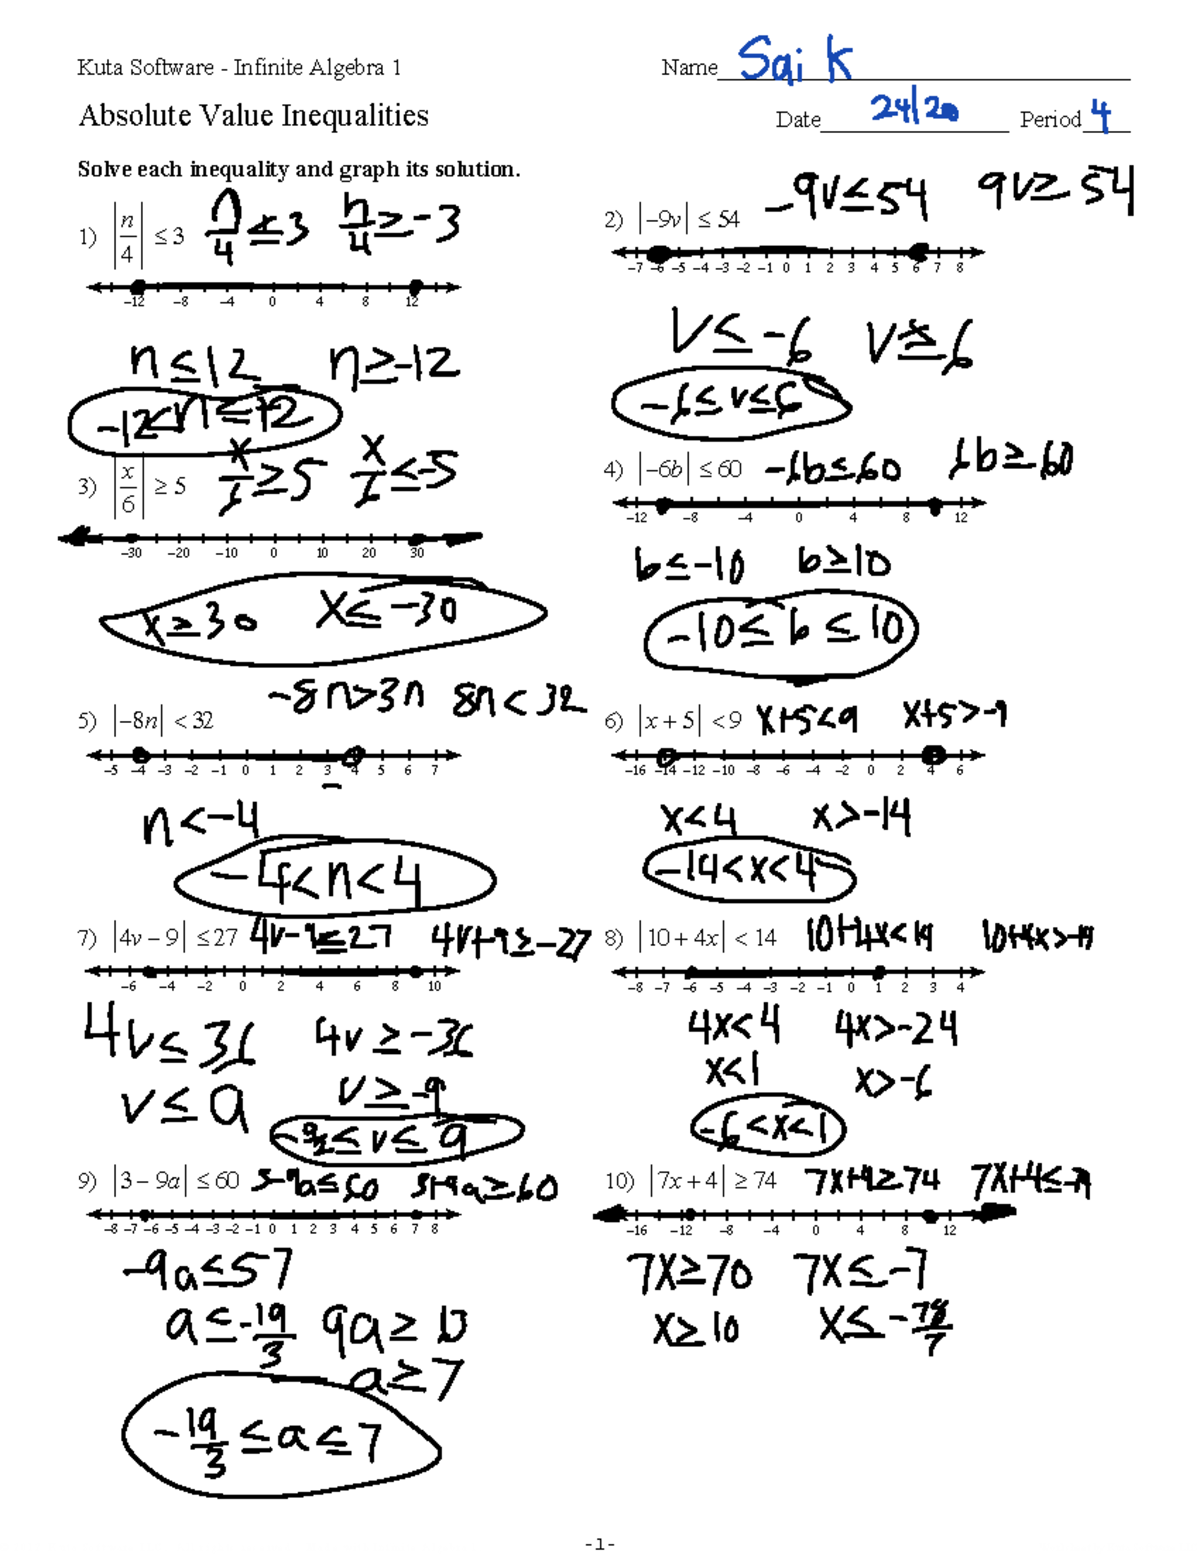 Kuta Software - Infinite Algebra 1
Name Sai K
Absolute Value Inequalities
Date 24/20 Period 4
Solve each inequality and graph its solution.
1) |n/4| ≤ 3 n/4 ≤ 3 n/4 ≥ -3
-12 -8 -4 0 4 8 12
n ≤ 12 n ≥ -12
-12 < n ≤ 12
2) |-9v| ≤ 54 -9v ≤ 54 9v ≥ 54
-7 -6 -5 -4 -3 -2 -1 0 1 2 3 4 5 6 7 8
v ≤ -6 v ≥ 6
-6 ≤ v ≤ 6
3) |x/6| ≥ 5 x/6 ≥ 5 x/6 ≤ -5
-30 -20 -10 0 10 20 30
x ≥ 30 x ≤ -30
4) |-6b| ≤ 60 -6b ≤ 60 6b ≥ 60
-12 -8 -4 0 4 8 12
b ≤ -10 b ≥ 10
-10 ≤ b ≤ 10
5) |-8n| < 32 -8n > 3n 8n < 32
-5 -4 -3 -2 -1 0 1 2 3 4 5 6 7
n < -4
-4 < n < 4
6) |x + 5| < 9 x+5 < 9 x+5 > -9
-16 -14 -12 -10 -8 -6 -4 -2 0 2 4 6
x < 4 x > -14
-14 < x < 4
7) |4v - 9| ≤ 27 4v-9 ≤ 27 4v+9 ≥ -27
-6 -4 -2 0 2 4 6 8 10
4v ≤ 36 4v ≥ -36
v ≤ 9 v ≥ -9
-9/2 ≤ v ≤ 9
8) |10 + 4x| < 14 10+4x < 14 10+4x > -14
-8 -7 -6 -5 -4 -3 -2 -1 0 1 2 3 4
4x < 4 4x > -24
x < 1 x > -6
-6 < x < 1
9) |3 - 9a| ≤ 60 3-9a ≤ 60 3+9a ≥ 60
-8 -7 -6 -5 -4 -3 -2 -1 0 1 2 3 4 5 6 7 8
-9a ≤ 57
a ≤ -19/3 9a ≥
a ≥ 7
-19/3 ≤ a ≤ 7
10) |7x + 4| ≥ 74 7x+4 ≥ 74 7x+4 ≤
-16 -12 -8 -4 0 4 8 12
7x ≥ 70 7x ≤ -7
x ≥ 10 x ≤ -78/7
-1-